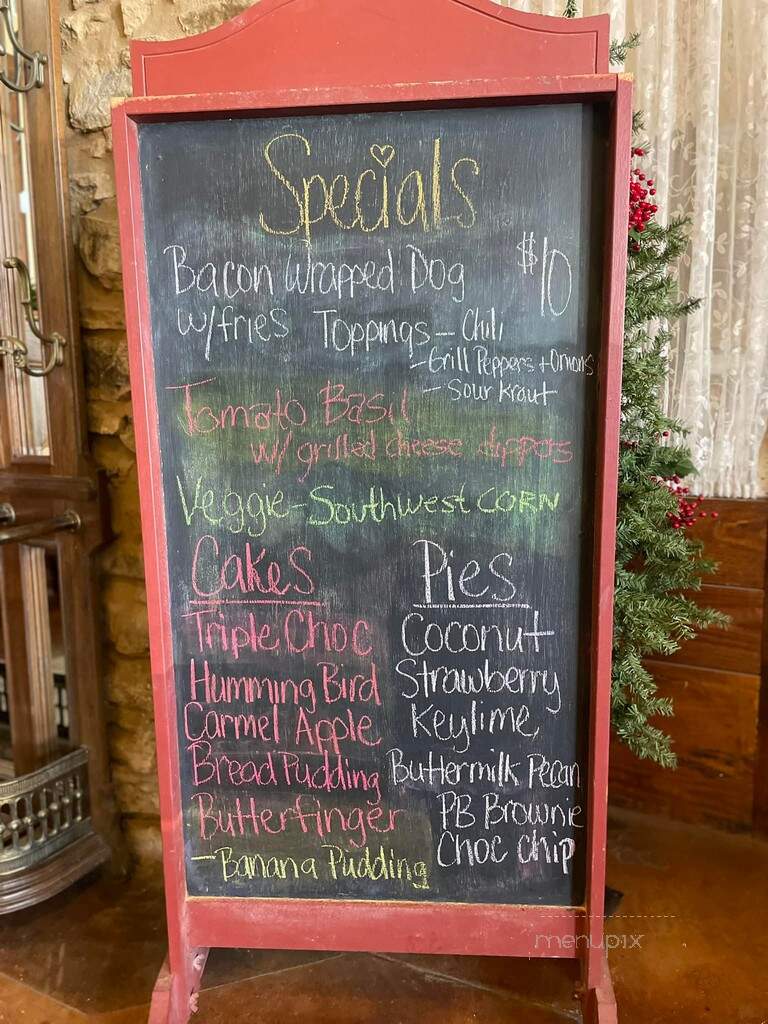 Specials
Bacon Wrapped Dog $10
w/fries Toppings - Chili
- Grill Peppers + Onions
- Sour Kraut
Tomato Basil
w/ grilled cheese dippers
Veggie - Southwest CORN
Cakes
Triple Choc
Humming Bird
Carmel Apple
Bread Pudding
Butterfinger
- Banana Pudding
Pies
Coconut
Strawberry
Keylime
Buttermilk Pecan
PB Brownie
Choc chip
menupix